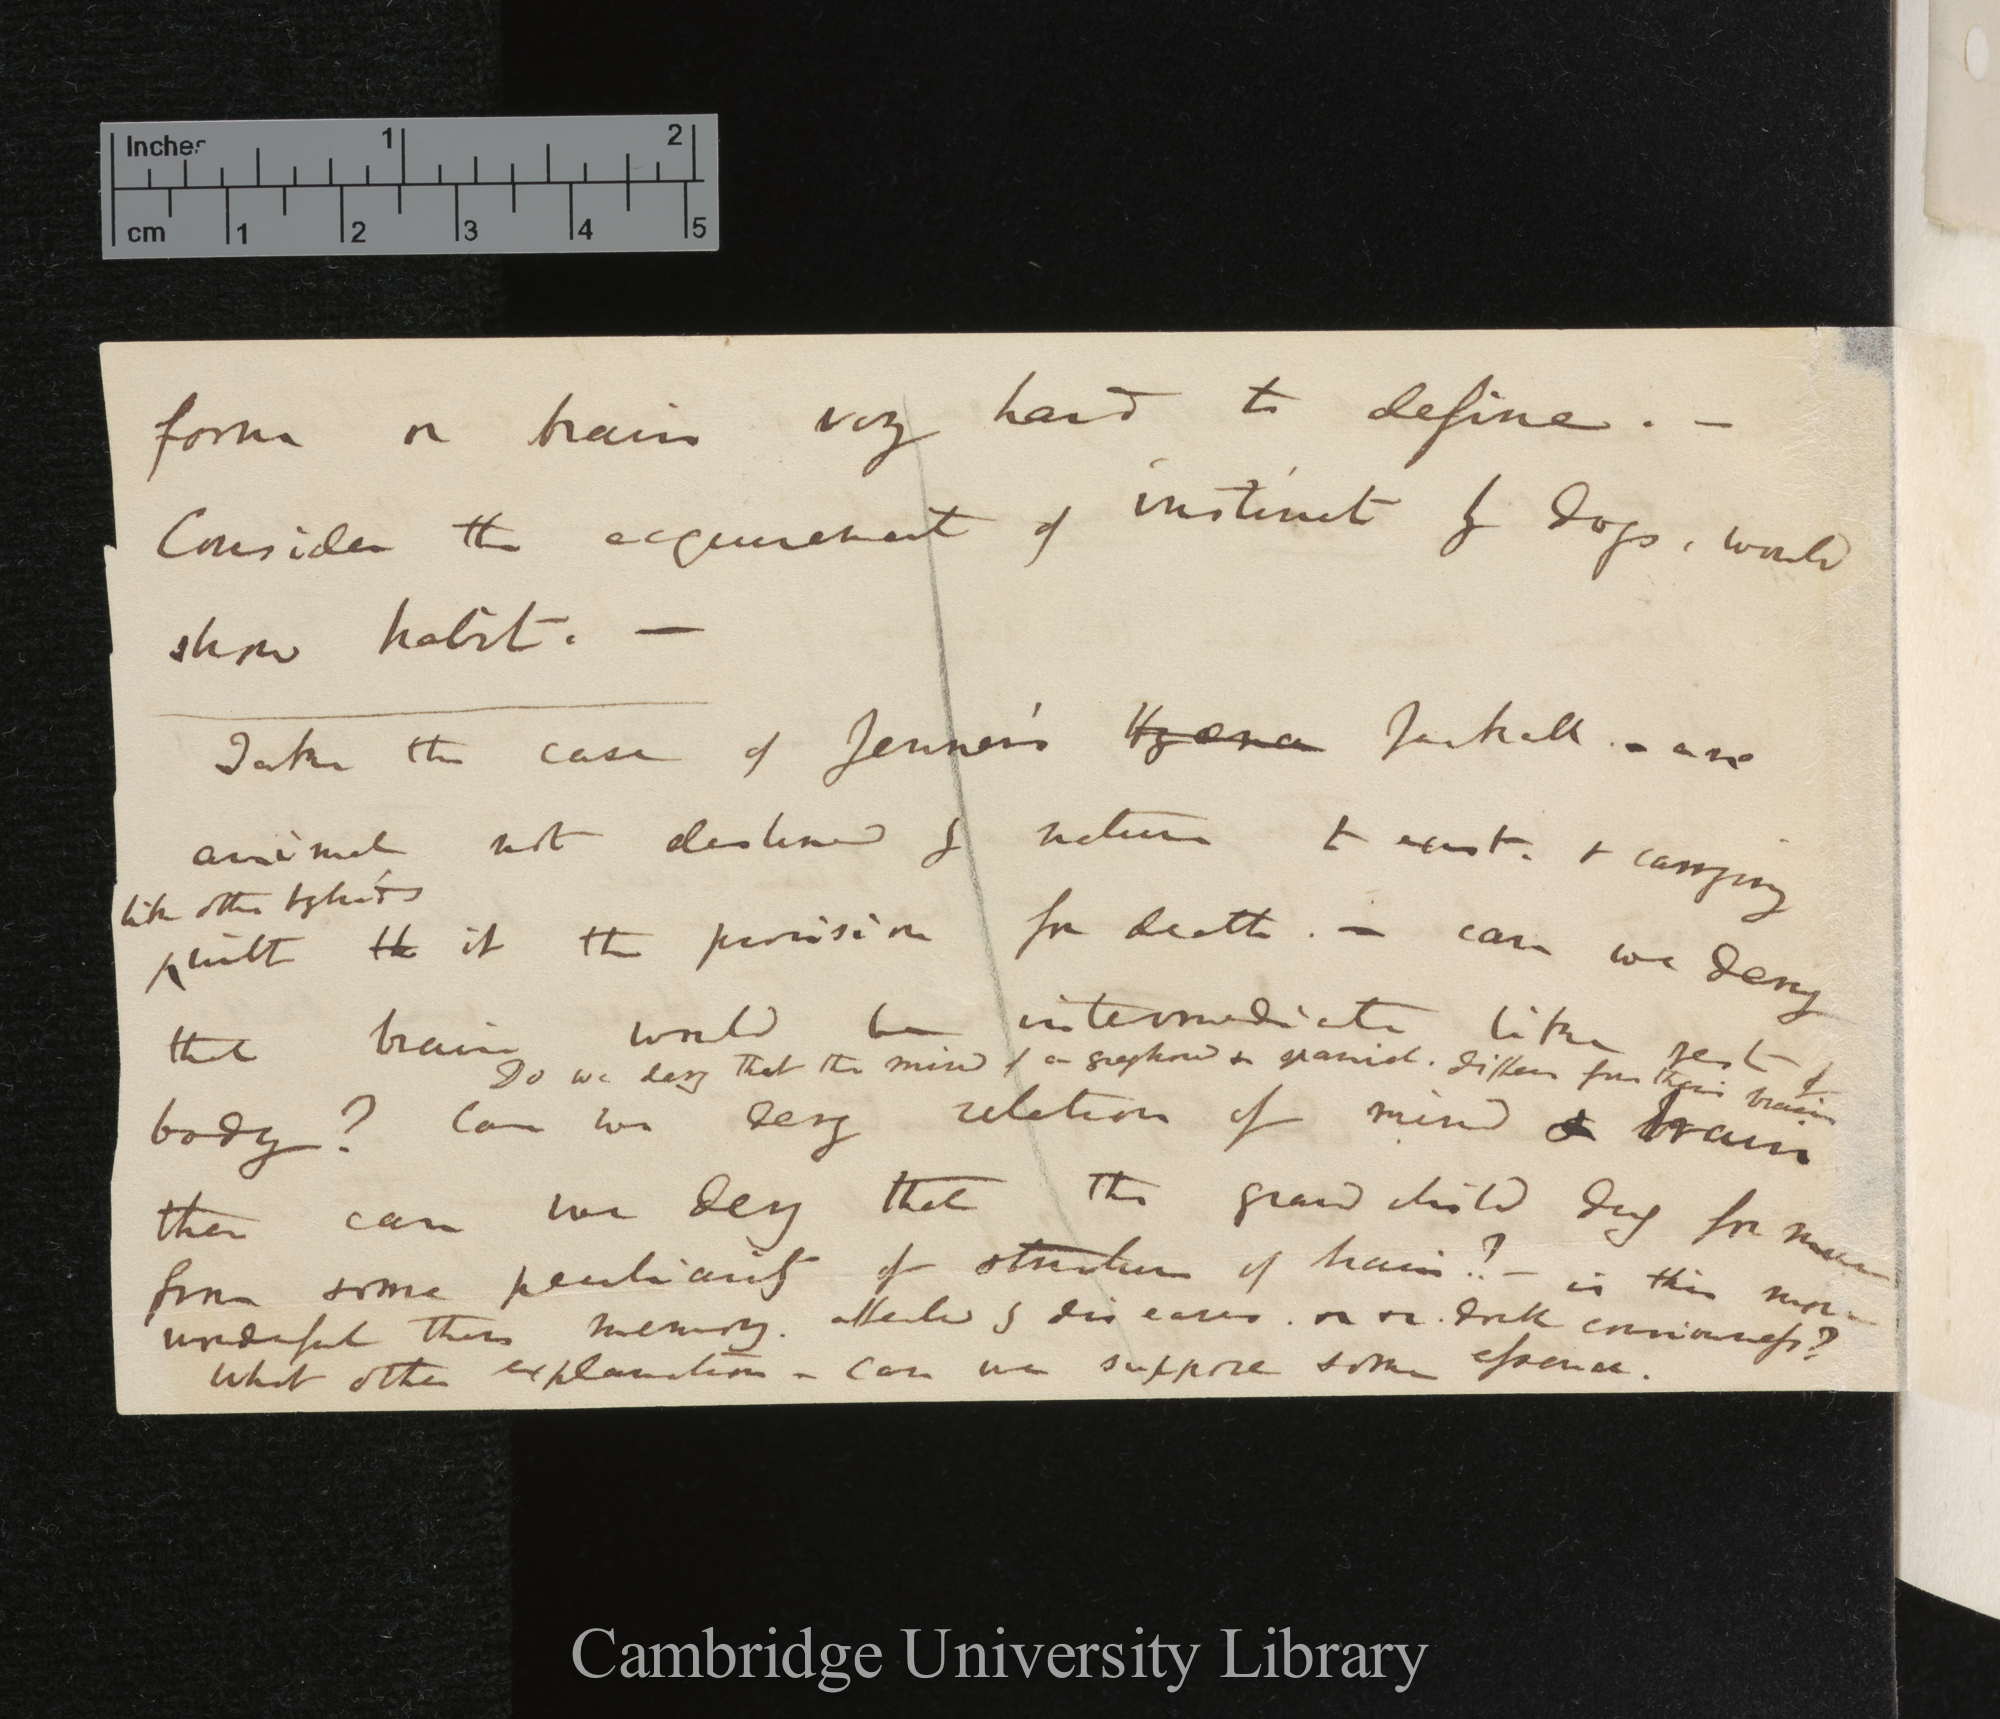 Inches 1 2
cm 1 2 3 4 5
form or brain very hard to define. —
Consider the acquirement of instinct by dogs, would
show habit. —
Take the case of Jenner's Hyæna Jackall. — an
animal not destined by nature to exist. & carrying
like other hybrids
with it the provision for death. — can we deny
that brain would be intermediate like rest of
Do we deny that the mind of a greyhound & spaniel. differs from their brains
body? Can we deny relation of mind & brain
then can we deny that the grand child dug for mice
from some peculiarity of structure of brain? — is this more
wonderful than memory. affected by diseases. or
double consciousness?
What other explanation – can we suppose some essence.
Cambridge University Library